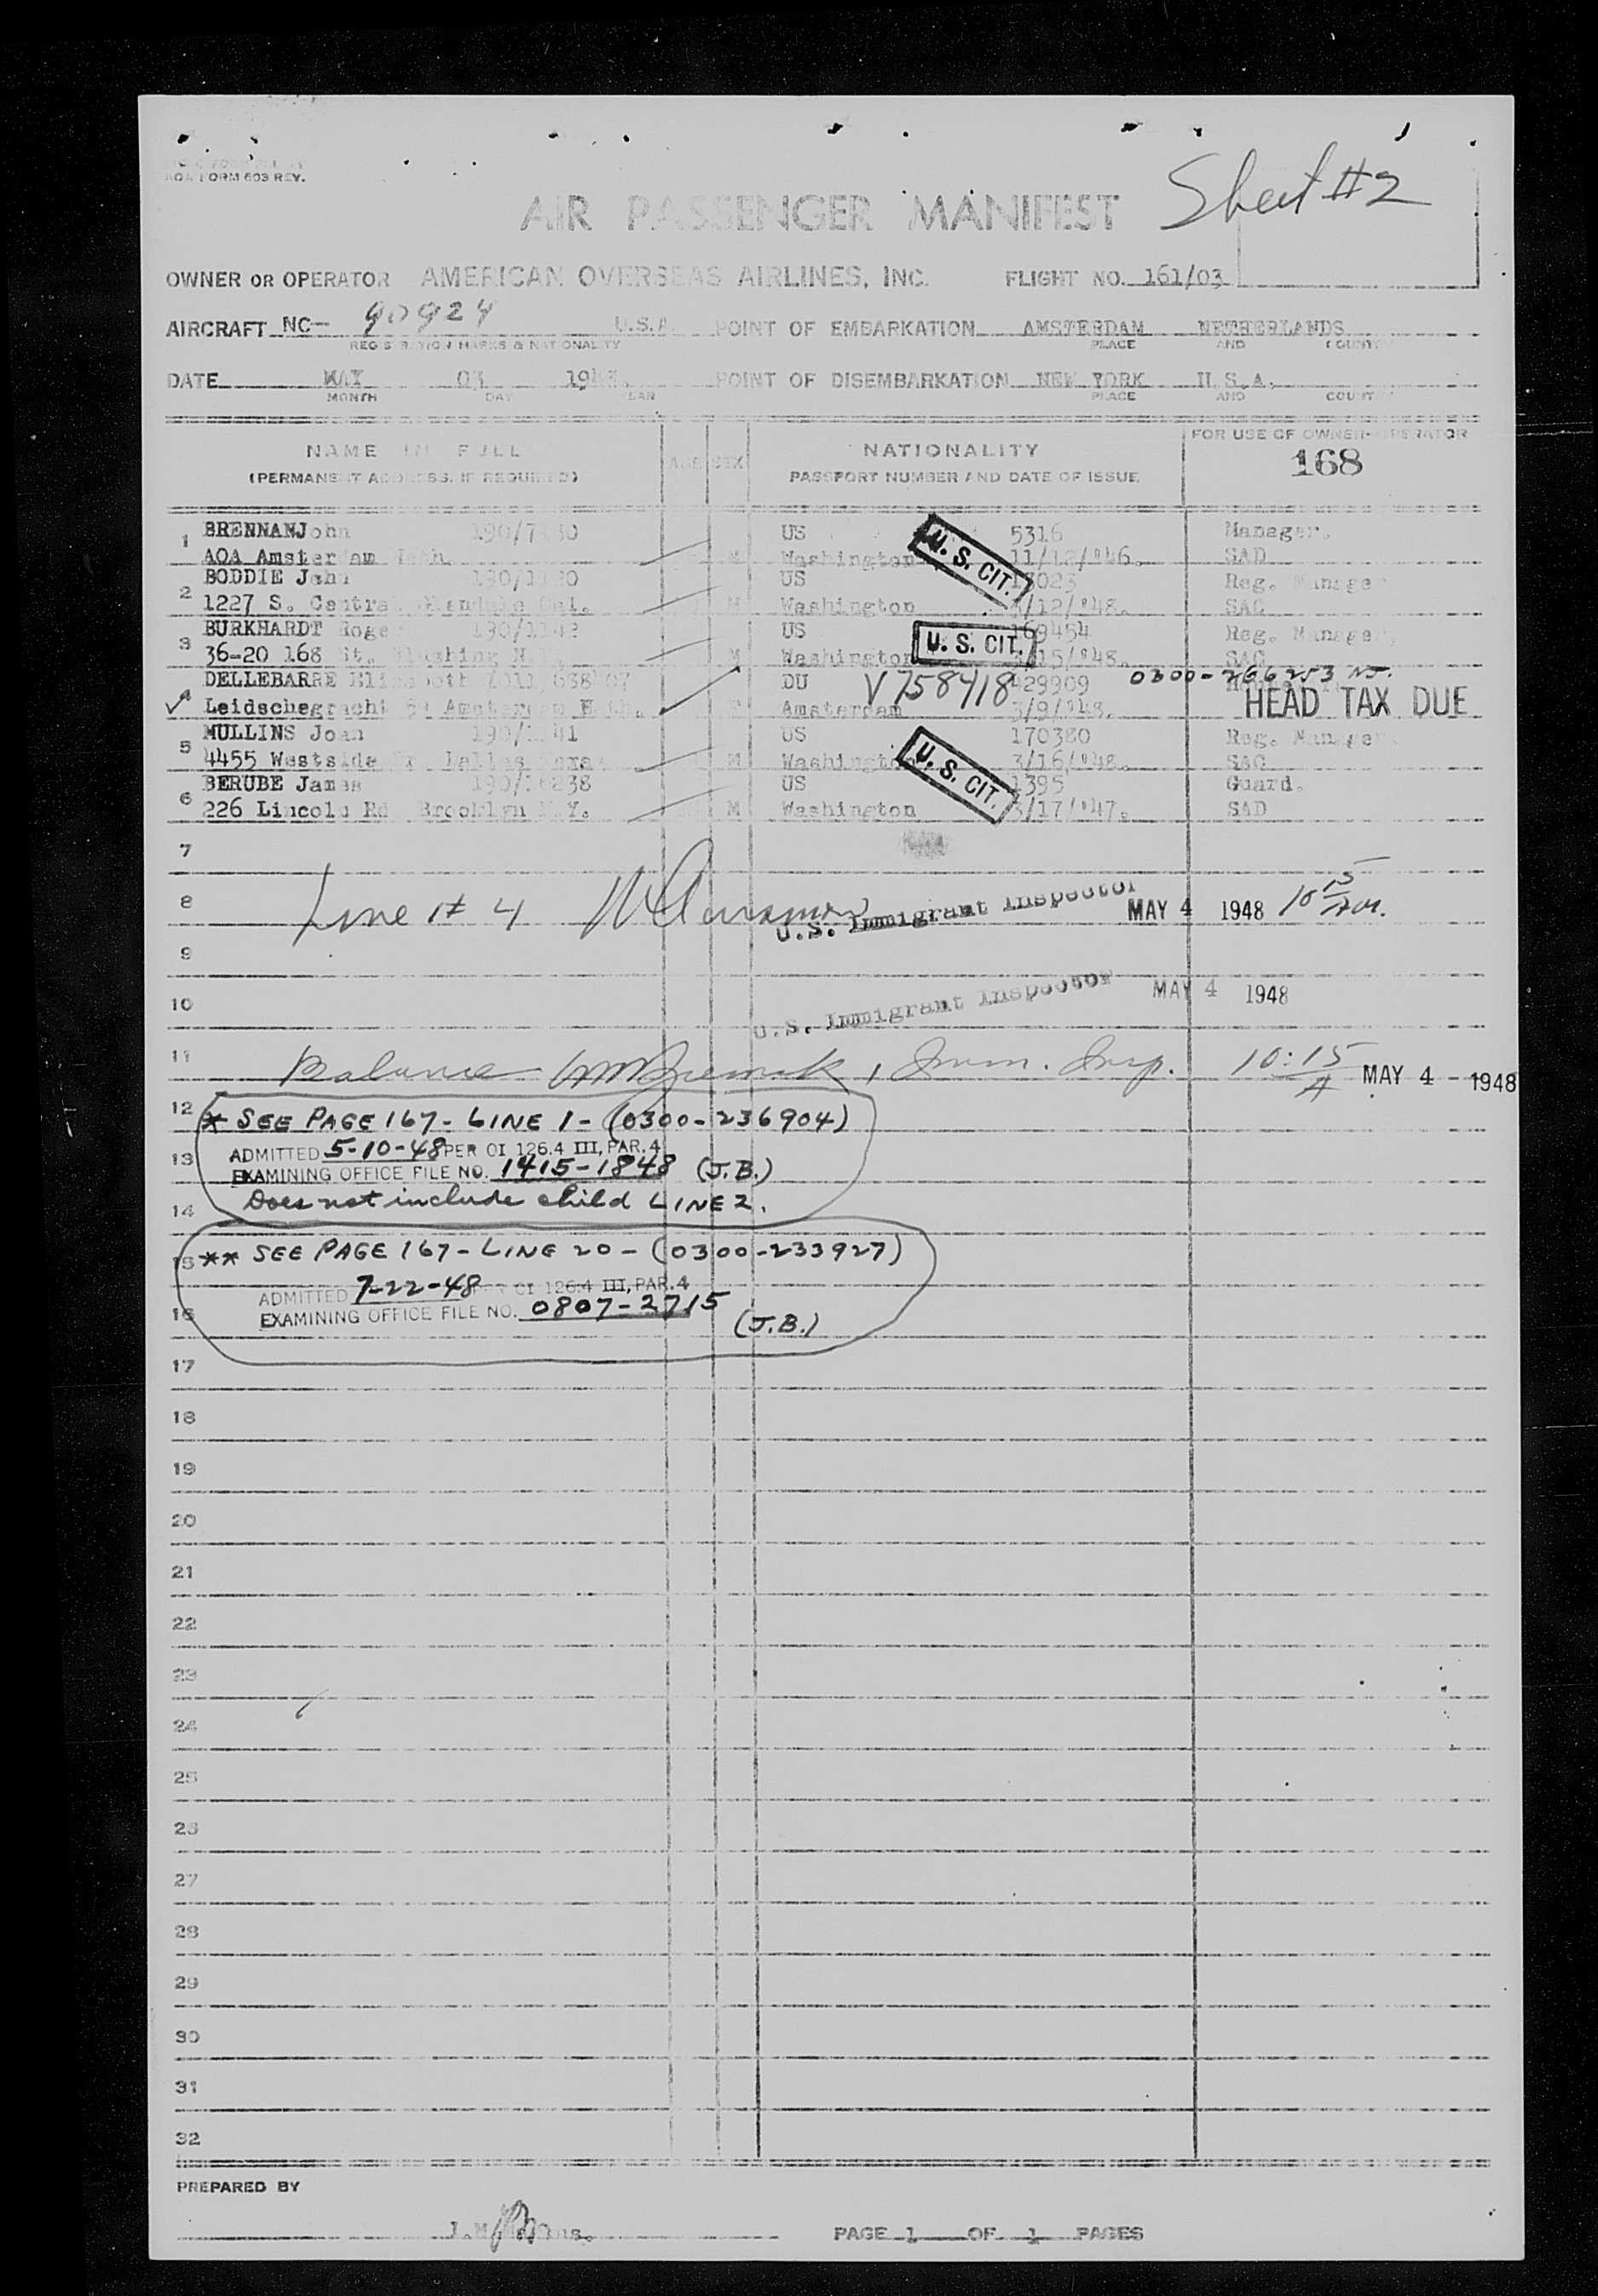 AOA FORM 603 REV.
Sheet #2
AIR PASSENGER MANIFEST
OWNER OR OPERATOR AMERICAN OVERSEAS AIRLINES, INC. FLIGHT NO. 161/03
AIRCRAFT NC- 90924 U.S.A. POINT OF EMBARKATION AMSTERDAM NETHERLANDS
REGISTRATION MARKS & NATIONALITY PLACE AND COUNTRY
DATE MAY 03 1948. POINT OF DISEMBARKATION NEW YORK U.S.A.
MONTH DAY YEAR PLACE AND COUNTRY
NAME IN FULL AGE SEX NATIONALITY FOR USE OF OWNER-OPERATOR
(PERMANENT ADDRESS, IF REQUIRED) PASSPORT NUMBER AND DATE OF ISSUE 168
1 BRENNANJohn US 5316 Manager.
AOA Amsterdam Neth. M Washington 11/12/'46. SAD
U. S. CIT.
2 BODDIE John US Reg. Manager
1227 S. Central Glendale Cal. M Washington /12/'48. SAC
3 BURKHARDT Roger US 169454 Reg. Manager
36-20 168 St. Flushing N.Y. M Washington /15/'48. SAC
U. S. CIT.
4 DELLEBARRE DU V758418 429909 0300-266253 NJ.
Leidschegracht Amsterdam Neth. Amsterdam 3/9/'48. HEAD TAX DUE
5 MULLINS US 170380 Reg. Manager
4455 Westside Dallas Texas M Washington 3/16/'48. SAC
U. S. CIT.
6 BERUBE James US 1395 Guard.
226 Lincoln Rd Brooklyn N.Y. M Washington /17/'47. SAD
7
8 Line # 4 U.S. Immigrant Inspector MAY 4 1948 10 15 AM.
9
10 U.S. Immigrant Inspector MAY 4 1948
11 Balance , Imm. Insp. 10:15 A MAY 4 - 1948
12 * SEE PAGE 167 - LINE 1 - (0300-236904)
13 ADMITTED 5-10-48 PER OI 126.4 III, PAR. 4
EXAMINING OFFICE FILE NO. 1415-1848 (J.B.)
14 Does not include child LINE 2.
15 ** SEE PAGE 167 - LINE 20 - (0300-233927)
ADMITTED 7-22-48 PER OI 126.4 III, PAR. 4
16 EXAMINING OFFICE FILE NO. 0807-2715
(J.B.)
17
18
19
20
21
22
23
24
25
26
27
28
29
30
31
32
PREPARED BY
PAGE 1 OF 1 PAGES